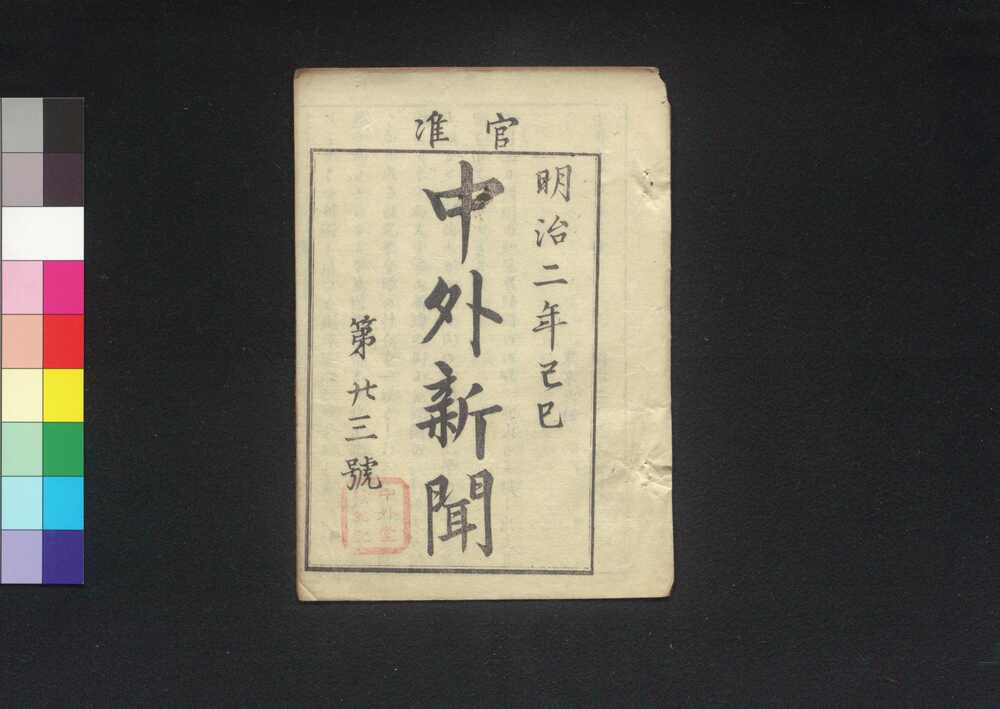 官准
明治二年己巳
中外新聞
第廿三號
中外堂